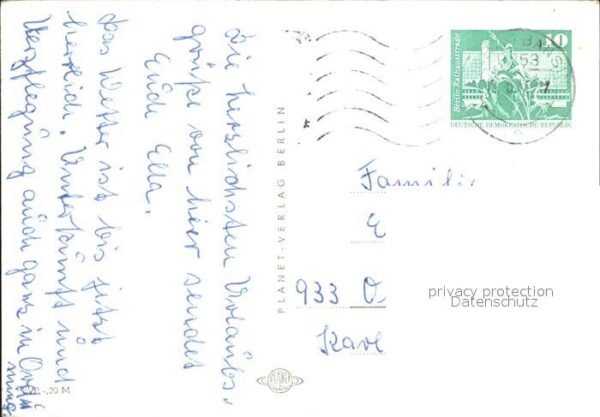 Die herzlichsten Urlaubs-
grüße von hier sendet
Eich Ella.
Das Wetter ist bis jetzt
herrlich. Unterkunft und
Verpflegung auch ganz in Ord-
nung
PLANET-VERLAG BERLIN
10
Berlin-Rathausstraße
DEUTSCHE DEMOKRATISCHE REPUBLIK
53
Familie
E
933 O
Karl
privacy protection
Datenschutz
PLANET
-,20 M